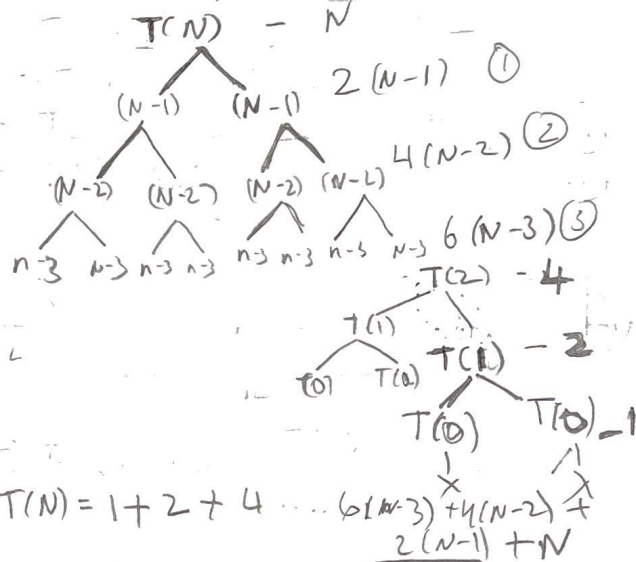 T(N) - N
(N-1) (N-1) 2(N-1) ①
(N-2) (N-2) (N-2) (N-2) 4(N-2) ②
n-3 N-3 n-3 n-3 n-3 n-3 n-3 N-3 6(N-3) ③
T(2) - 4
T(1) T(1) - 2
T(0) T(0)
T(0) T(0) - 1
x x
T(N) = 1 + 2 + 4 .... 6(N-3) + 4(N-2) +
2(N-1) + N